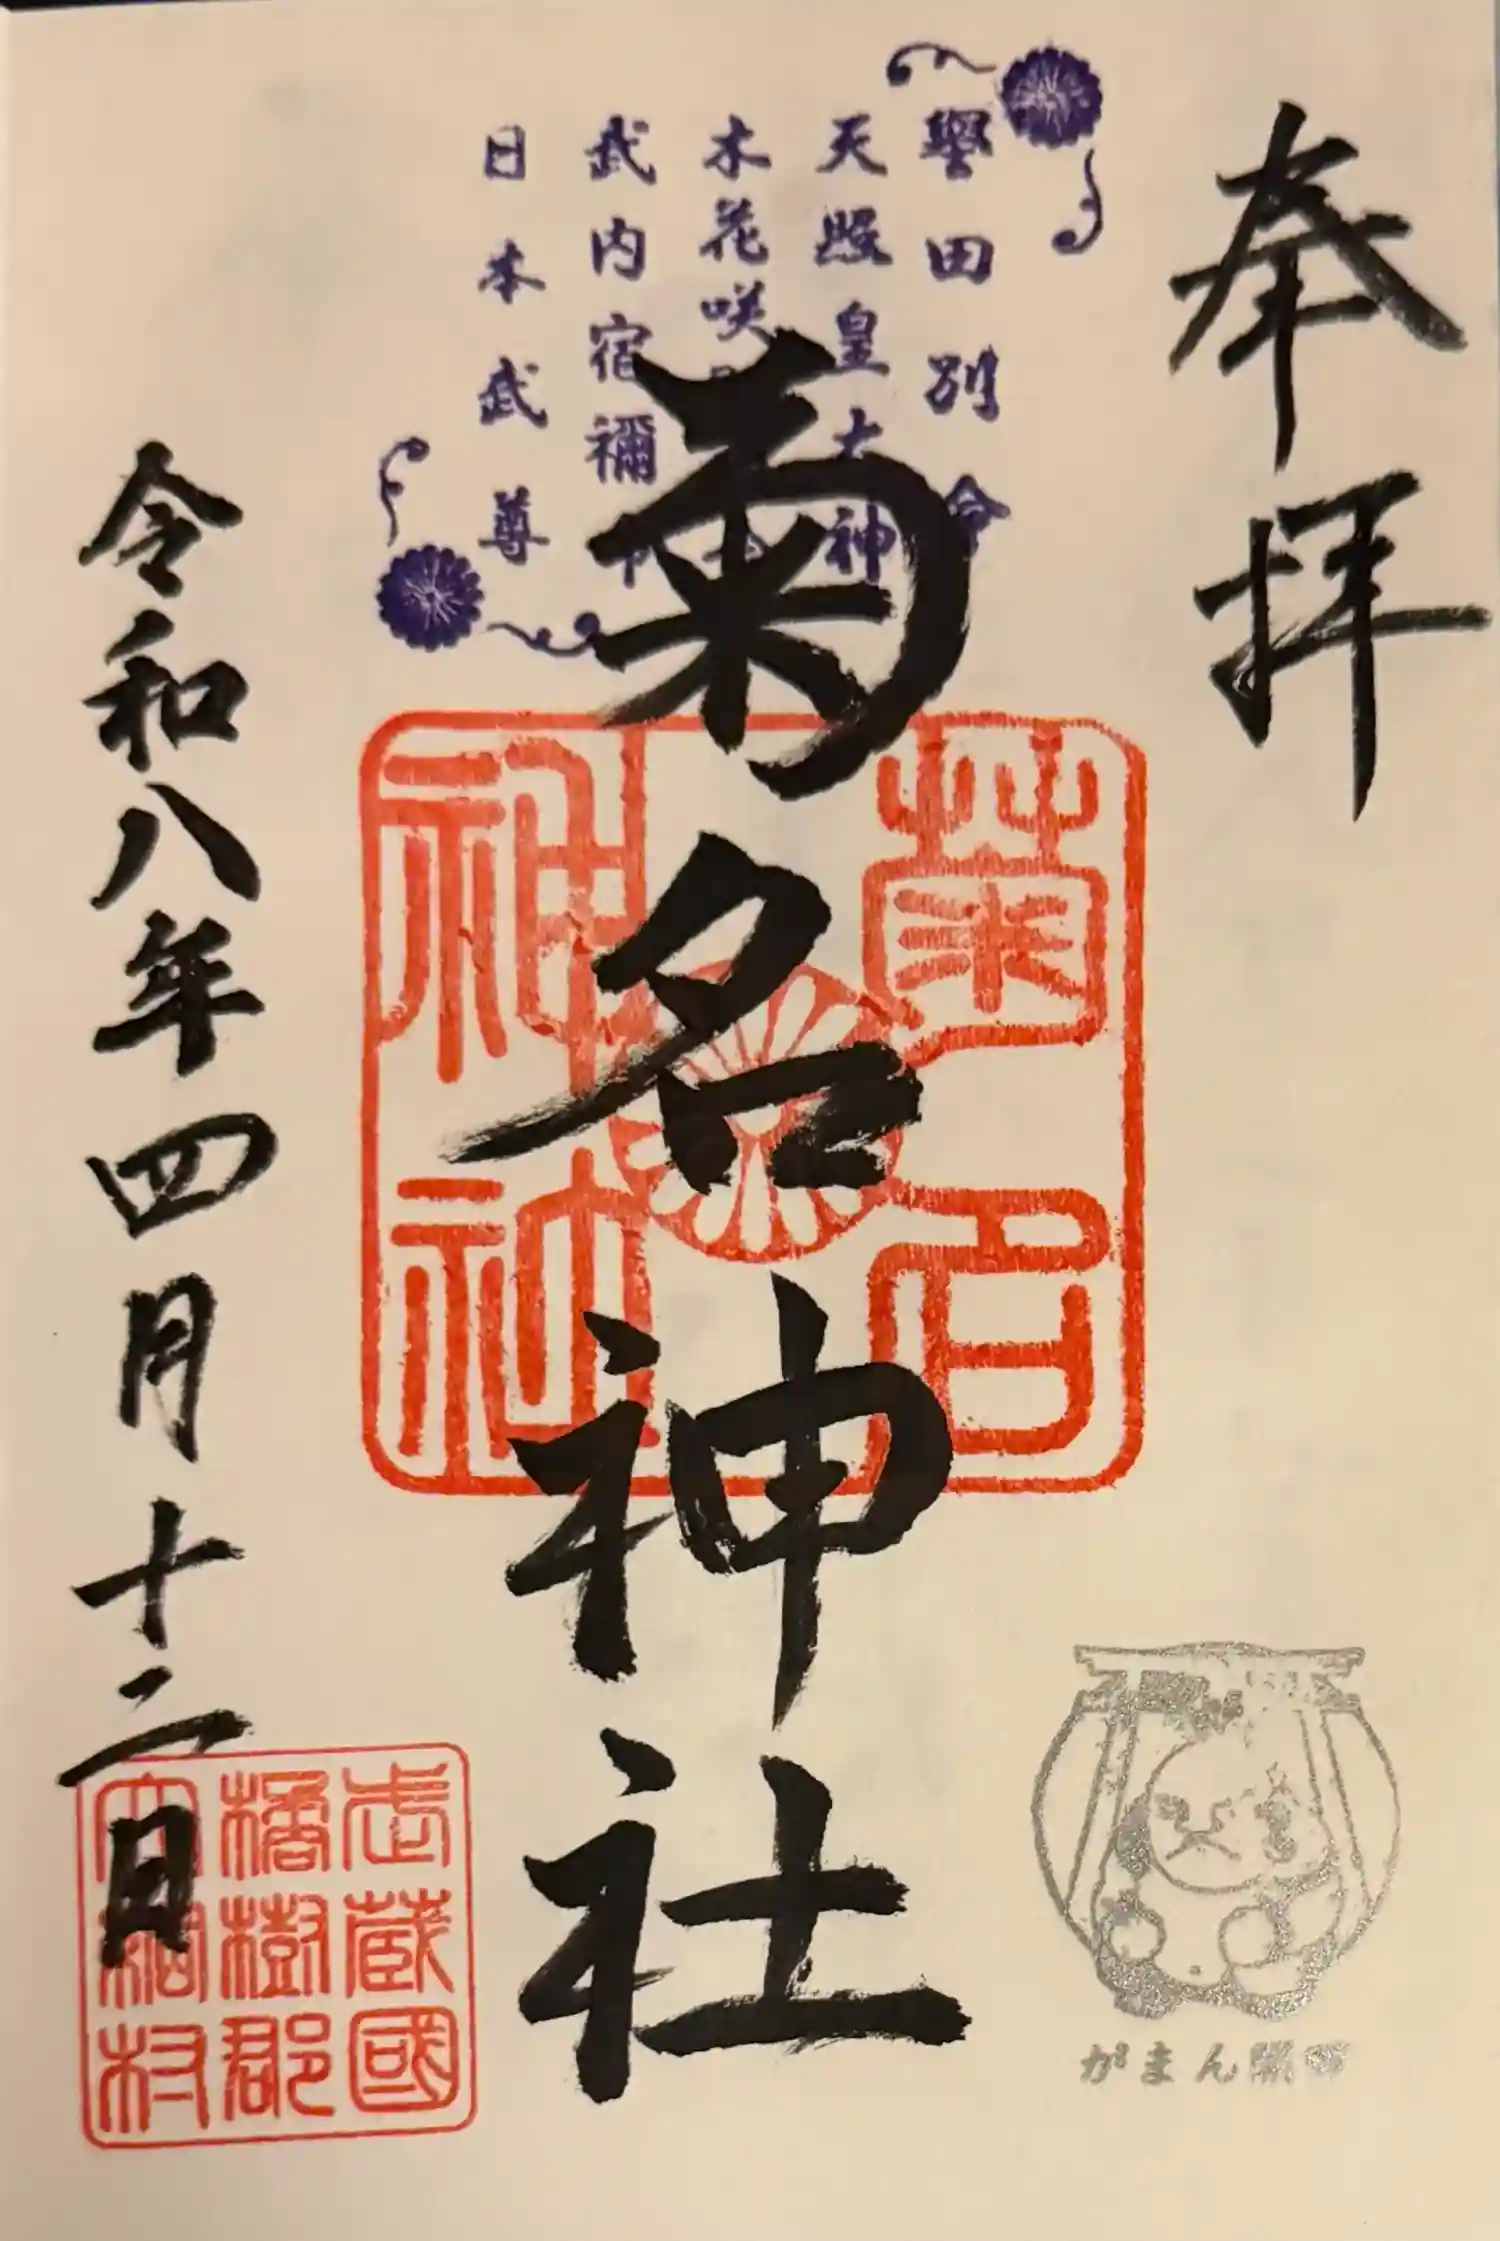 奉拝
譽田別命
天照皇大神
木花咲
武内宿禰命
日本武尊
菊名神社
菊名
神社
令和八年四月十二日
武蔵國
橘樹郡
村
がまん